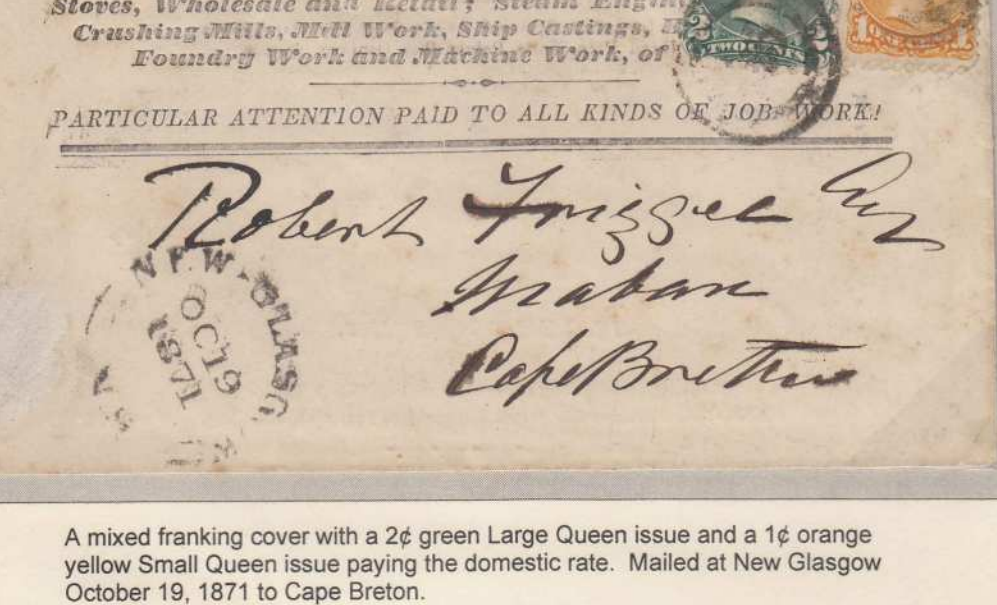 Stoves, Wholesale and Retail; Steam Engin
Crushing Mills, Mill Work, Ship Castings,
Foundry Work and Machine Work, of
2 TWO CENTS 2
1 1
PARTICULAR ATTENTION PAID TO ALL KINDS OF JOB WORK!
Robert Frizzel Esq
Mabou
Cape Breton
NEW-GLASGO
OC 19
1871
N.S
A mixed franking cover with a 2¢ green Large Queen issue and a 1¢ orange
yellow Small Queen issue paying the domestic rate. Mailed at New Glasgow
October 19, 1871 to Cape Breton.